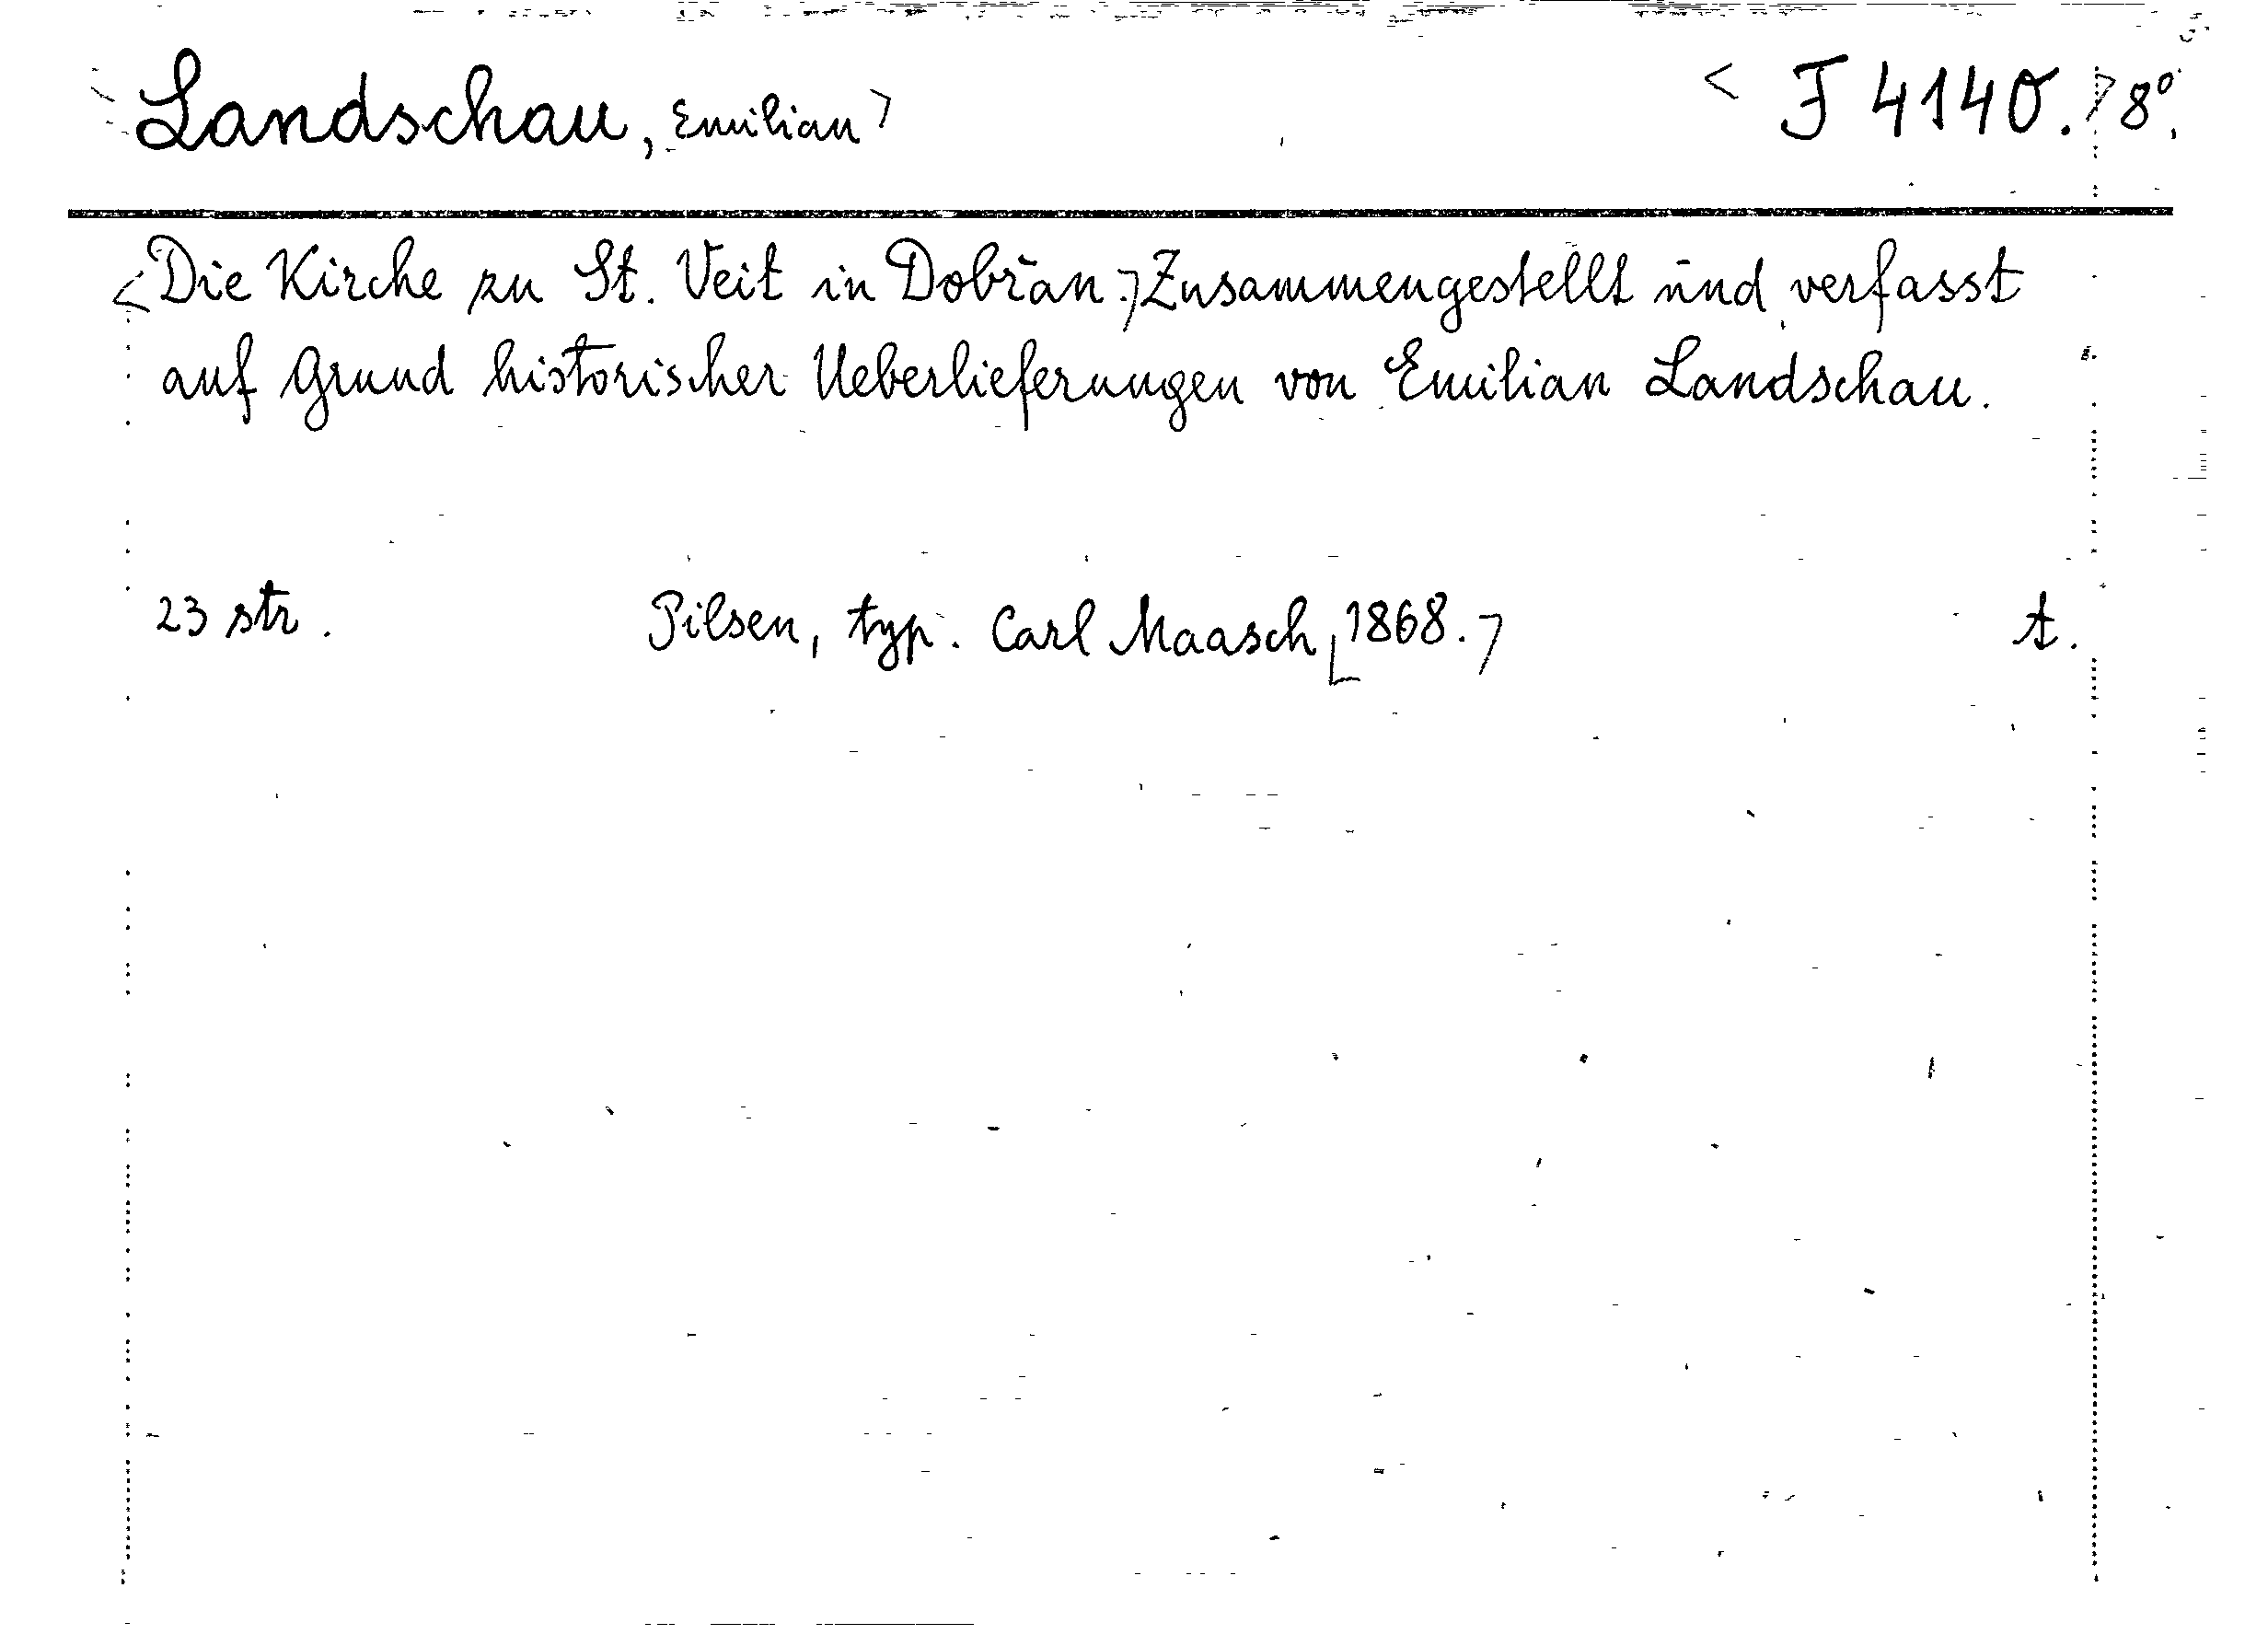 Landschau, Emilian > < J 4140. > 8°.
<Die Kirche zu St. Veit in Dobřan.> Zusammengestellt und verfasst
auf Grund historischer Ueberlieferungen von Emilian Landschau.
23 str. Pilsen, typ. Carl Maasch, 1868. t.